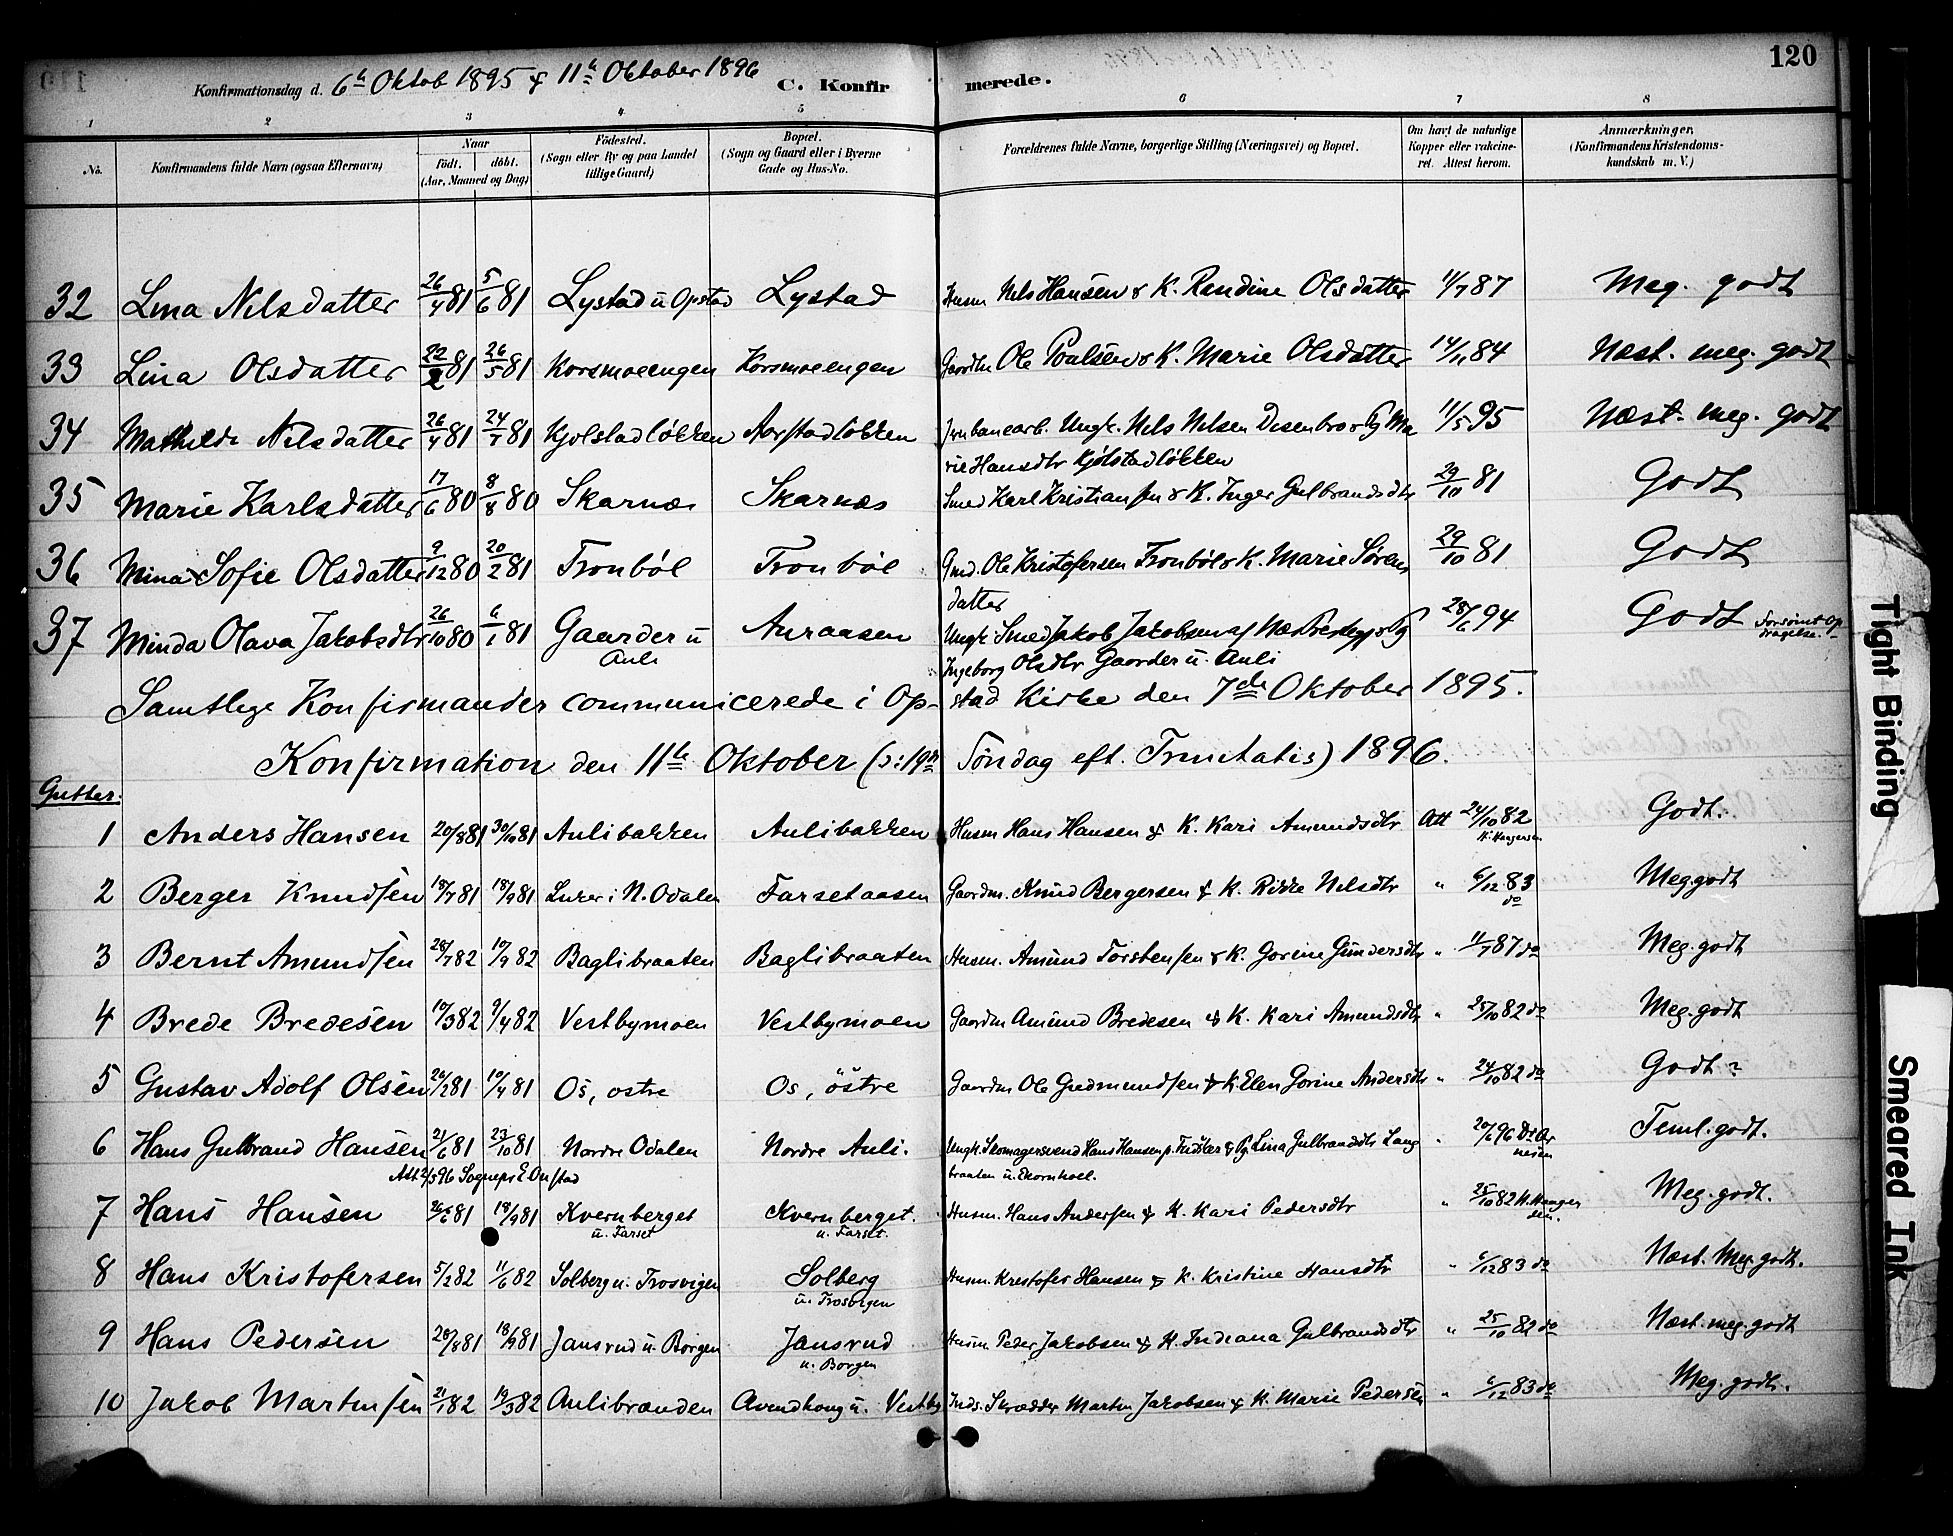 120
Konfirmationsdag d. 6te Oktob 1895 & 11te Oktober 1896 C. Konfirmerede.
1 2 3 4 5 6 7 8
No. Konfirmandens fulde Navn (ogsaa Efternavn) Naar født. døbt. (Aar, Maaned og Dag) Födested. (Sogn eller By og paa Landet tillige Gaard) Bopæl. (Sogn og Gaard eller i Byerne Gade og Hus-No. Forældrenes fulde Navne, borgerlige Stilling (Næringsvei) og Bopæl. Om havt de naturlige Kopper eller vakcineret. Attest herom. Anmærkninger. (Konfirmandens Kristendomskundskab m. V.)
32 Lina Nilsdatter 26/4 81 5/6 81 Lystad u Opstad Lystad Husm Nels Hansen & K. Randine Olsdatter 11/7 87 Meg. godt
33 Lina Olsdatter 22/2 81 26/5 81 Korsmoeengen Korsmoeengen Gaardm Ole Poulsen & K. Marie Olsdatter 14/11 84 Næst. meg. godt
34 Mathilde Nilsdatter 26/4 81 24/7 81 Kjølstadløkken Aarstadløkken Jernbanearb. Ungk. Nels Nelsen Disenbro & Pg Ma
rie Hansdtr Kjölstadløkken 11/5 95 Næst. meg. godt
35 Marie Karlsdatter 17/6 80 8/8 80 Skarnæs Skarnæs Smed Karl Kristiansen & K. Inger Gulbrandsdtr 29/10 81 Godt
36 Mina Sofie Olsdatter 9/12 80 20/2 81 Tronböl Tronböl Gmd. Ole Kristofersen Tronböl & K. Marie Sörens
datter 29/10 81 Godt
37 Minda Olava Jakobsdtr 26/10 80 6/1 81 Gaarder u Auli Auraasen Ungk. Smed Jakob Jakobsen af & Pg
Ingeborg Olsdtr Gaarder u. Auli 28/6 94 Godt Forsömt Op
dragelse.
Samtlige Konfirmander communicerede i Opstad Kirke den 7de Oktober 1895.
Konfirmation den 11te Oktober (ɔ: 19de Söndag eft. Trinitatis) 1896.
Gutter.
1 Anders Hansen 20/8 81 30/10 81 Aulibakken Aulibakken Husm Hans Hansen & K. Kari Amundsdtr Att 24/10 82 Godt.
2 Berger Knudsen 18/7 81 18/9 81 i N. Odalen Farsetaasen Gaardm. Knud Bergersen & K. Rikke Nilsdtr " 6/12 83 do Meg. godt
3 Bernt Amundsen 28/7 82 10/9 82 Baglibraaten Baglibraaten Husm. Amund Torstensen & K. Gorine Gundersdtr " 11/7 87 do Meg. godt
4 Brede Bredesen 10/3 82 9/4 82 Vestbymoen Vestbymoen Gaardm Amund Bredesen & K. Kari Amundsdtr " 25/10 82 do Meg. godt
5 Gustav Adolf Olsen 20/2 81 10/4 81 Os, östre Os, östre Gaardm Ole Gudmundsen & K. Elen Gorine Andersdtr " 24/10 82 do Godt?
6 Hans Gulbrand Hansen 21/6 81 23/10 81 Nordre Odalen Nordre Auli. Ungk. Skomagersvend Hans Hansen & Pg. Lina Gulbrandsdtr Lang
braaten u. Ekornhoel. " 20/6 96 Teml. godt.
Att 2/5 96 Sognepr E Onstad
7 Hans Hansen 26/6 81 18/9 81 Kvernberget u. Farset Kvernberget. u. Farset. Husm. Hans Andersen & K. Kari Pedersdtr " 25/10 82 Meg. godt.
8 Hans Kristofersen 5/2 82 11/6 82 Solberg u. Trosvigen Solberg u. Trosvigen Husm. Kristofer Hansen & K. Kristine Hansdtr " 6/12 83 do Næst. Meg. godt.
9 Hans Pedersen 20/8 81 18/9 81 Jansrud u. Borgen Jansrud u. Borgen Husm Peder Jakobsen & K. Indiana Gulbrandsdtr " 25/10 82 do Næst. meg. godt
10 Jakob Martinsen 21/1 82 19/3 82 Aulibranden Avendhoug u. Vestby Inds. Skrædder Martin Jakobsen & K. Marie Pedersen " 6/12 83 do Meg. godt.
Tight Binding
Smeared Ink